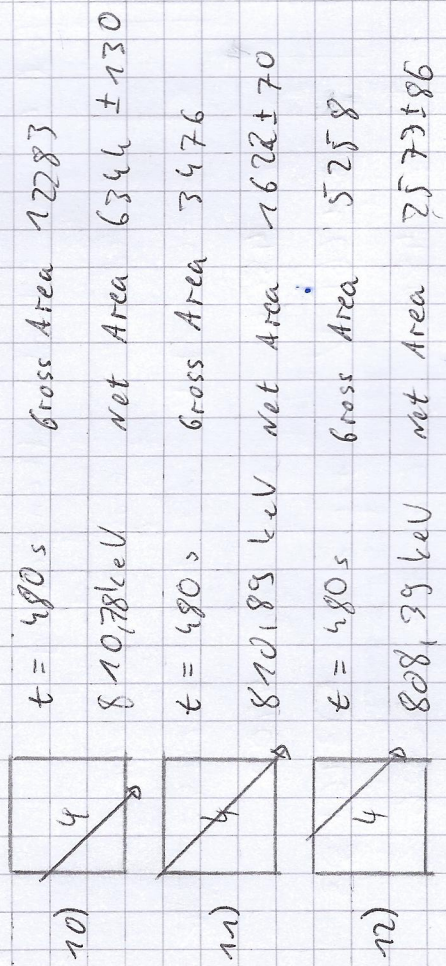 10) 4 t = 480s Gross Area 12283
810,78keV Net Area 6344 ± 130
11) 4 t = 480s Gross Area 3476
810,89 keV Net Area 1622 ± 70
12) 4 t = 480s Gross Area 5258
808,39 keV Net Area 2573 ± 86